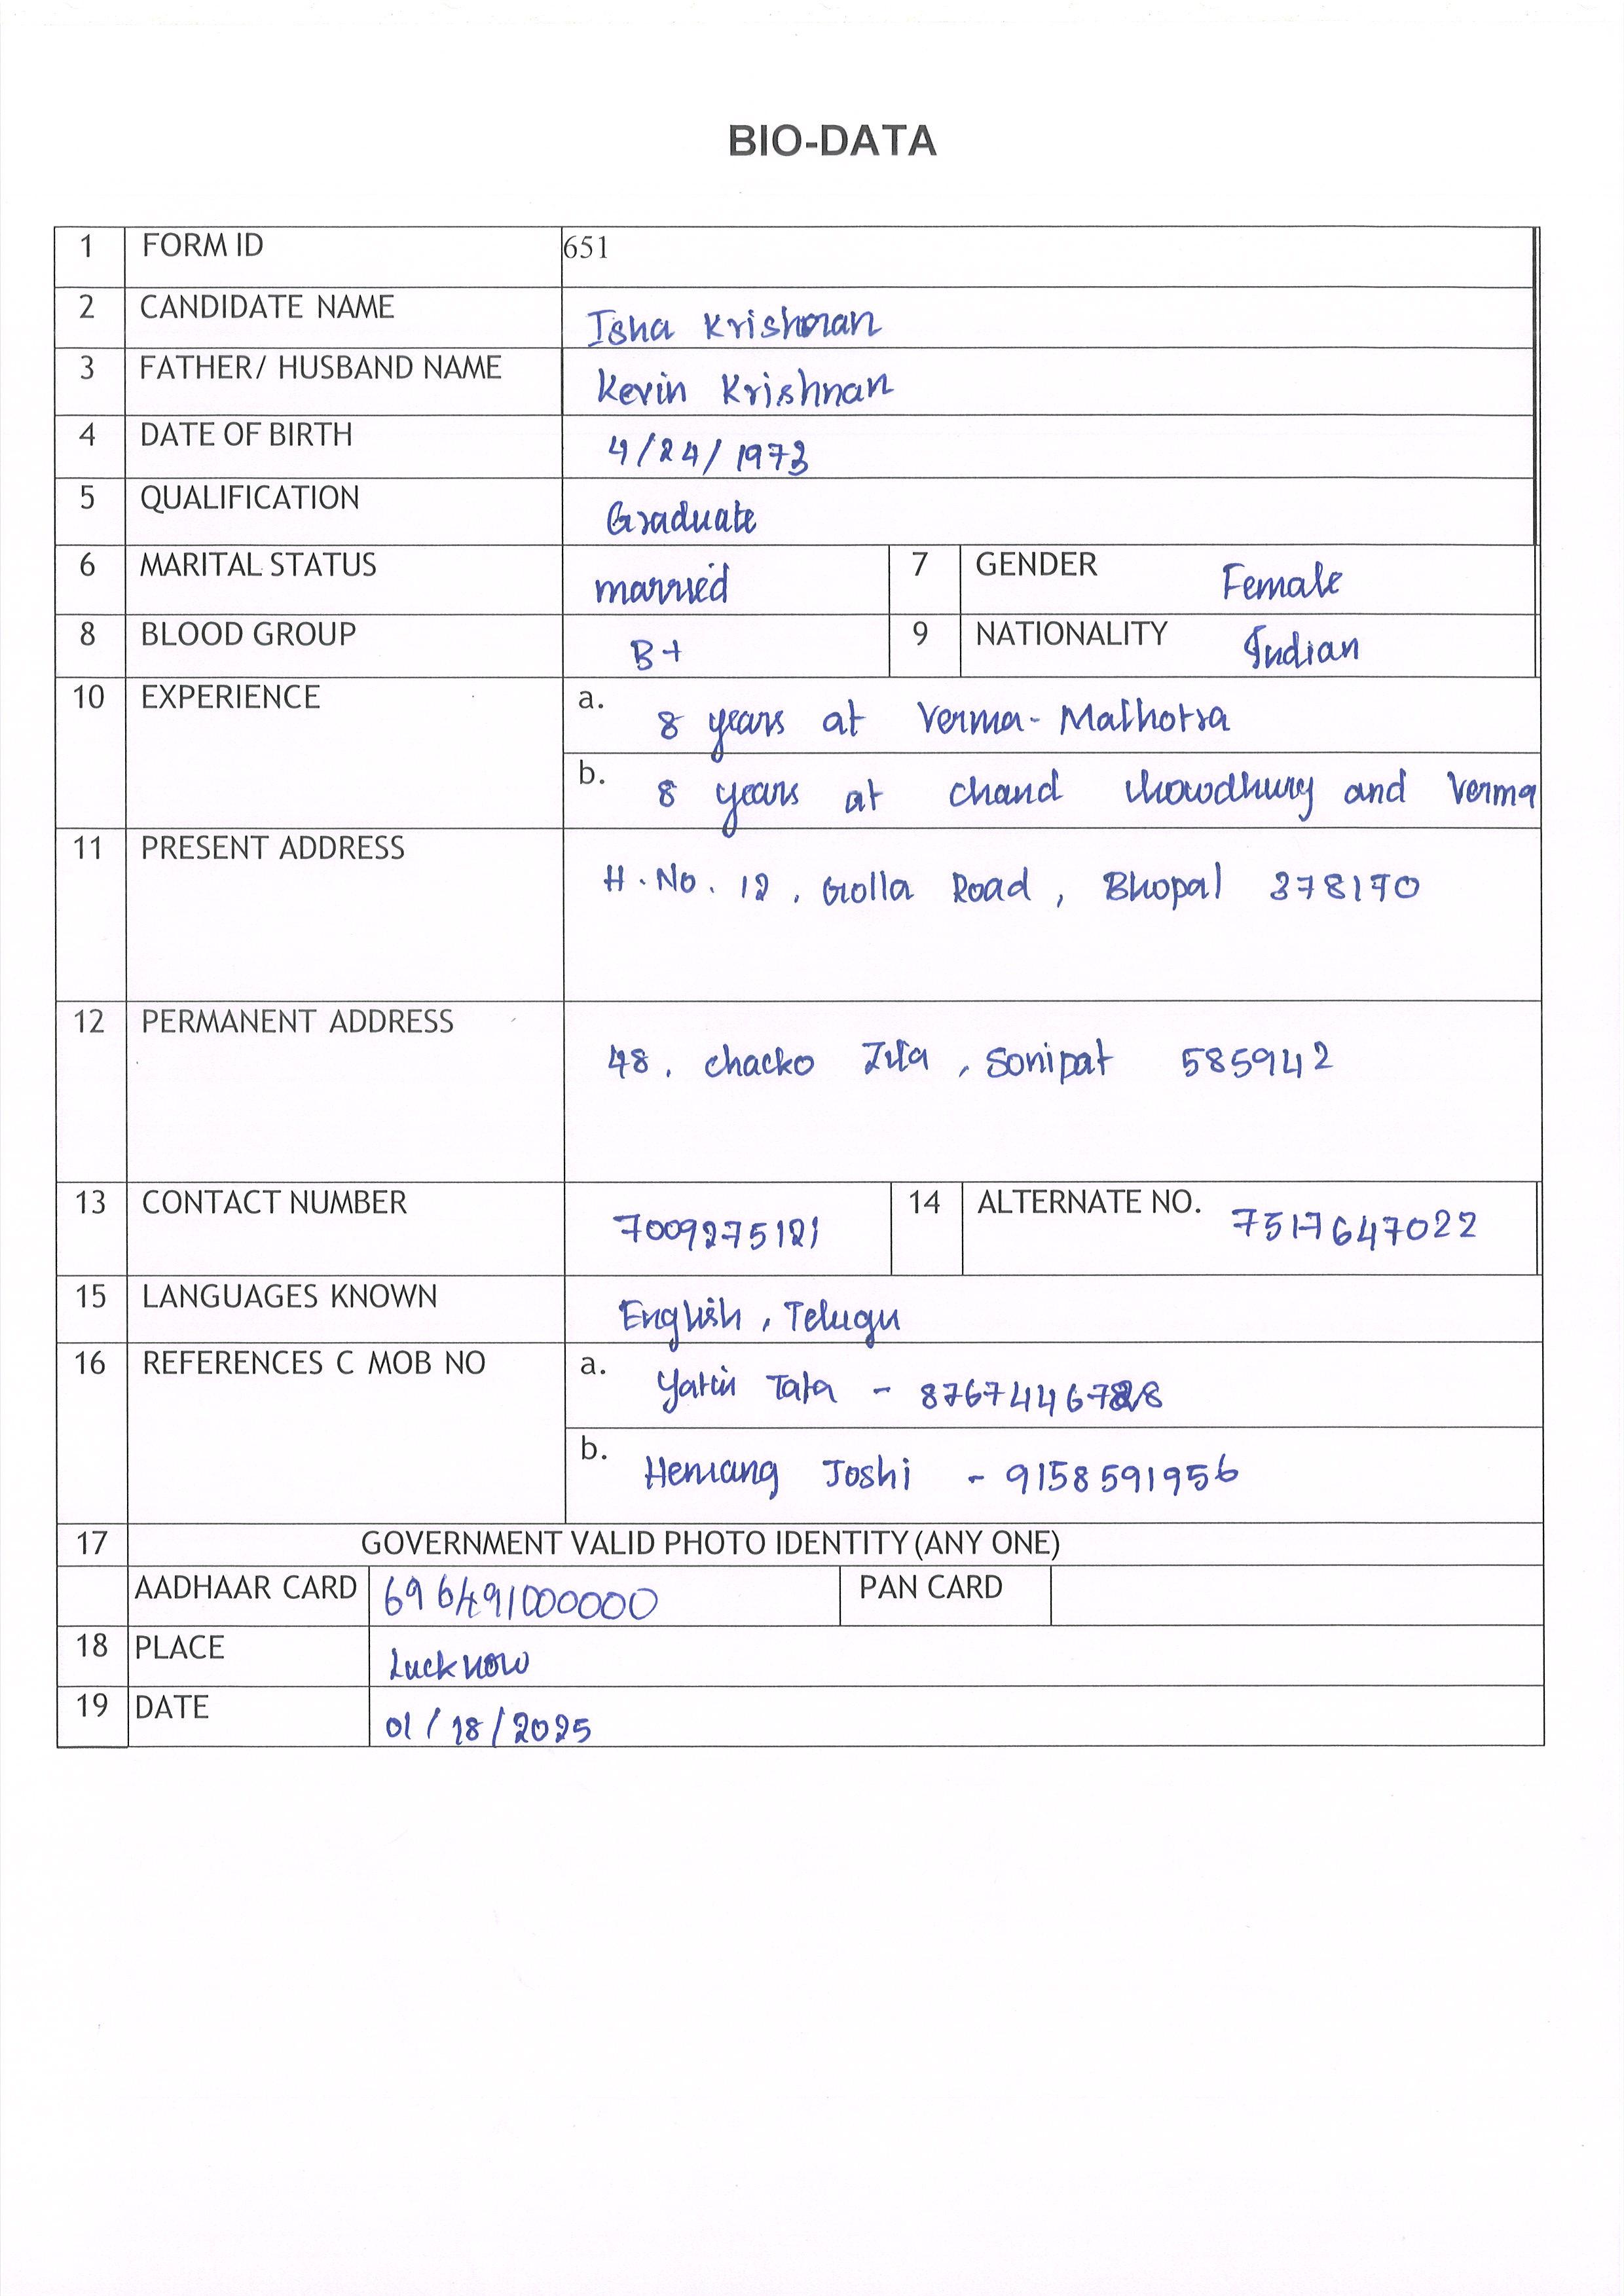 BIO-DATA
1 FORM ID 651
2 CANDIDATE NAME Isha Krishnan
3 FATHER/ HUSBAND NAME Kevin Krishnan
4 DATE OF BIRTH 4/24/1973
5 QUALIFICATION Graduate
6 MARITAL STATUS married 7 GENDER Female
8 BLOOD GROUP B+ 9 NATIONALITY Indian
10 EXPERIENCE a. 8 years at Verma-Malhotra
b. 8 years at chand chowdhury and Verma
11 PRESENT ADDRESS H.No. 12, Golla Road, Bhopal 378170
12 PERMANENT ADDRESS 48, chacko Zila, Sonipat 585942
13 CONTACT NUMBER 7009275121 14 ALTERNATE NO. 7517647022
15 LANGUAGES KNOWN English, Telugu
16 REFERENCES C MOB NO a. Yatin Tata -
b. Hemang Joshi - 9158591956
17 GOVERNMENT VALID PHOTO IDENTITY (ANY ONE)
AADHAAR CARD 696491000000 PAN CARD
18 PLACE Lucknow
19 DATE 01/18/2025